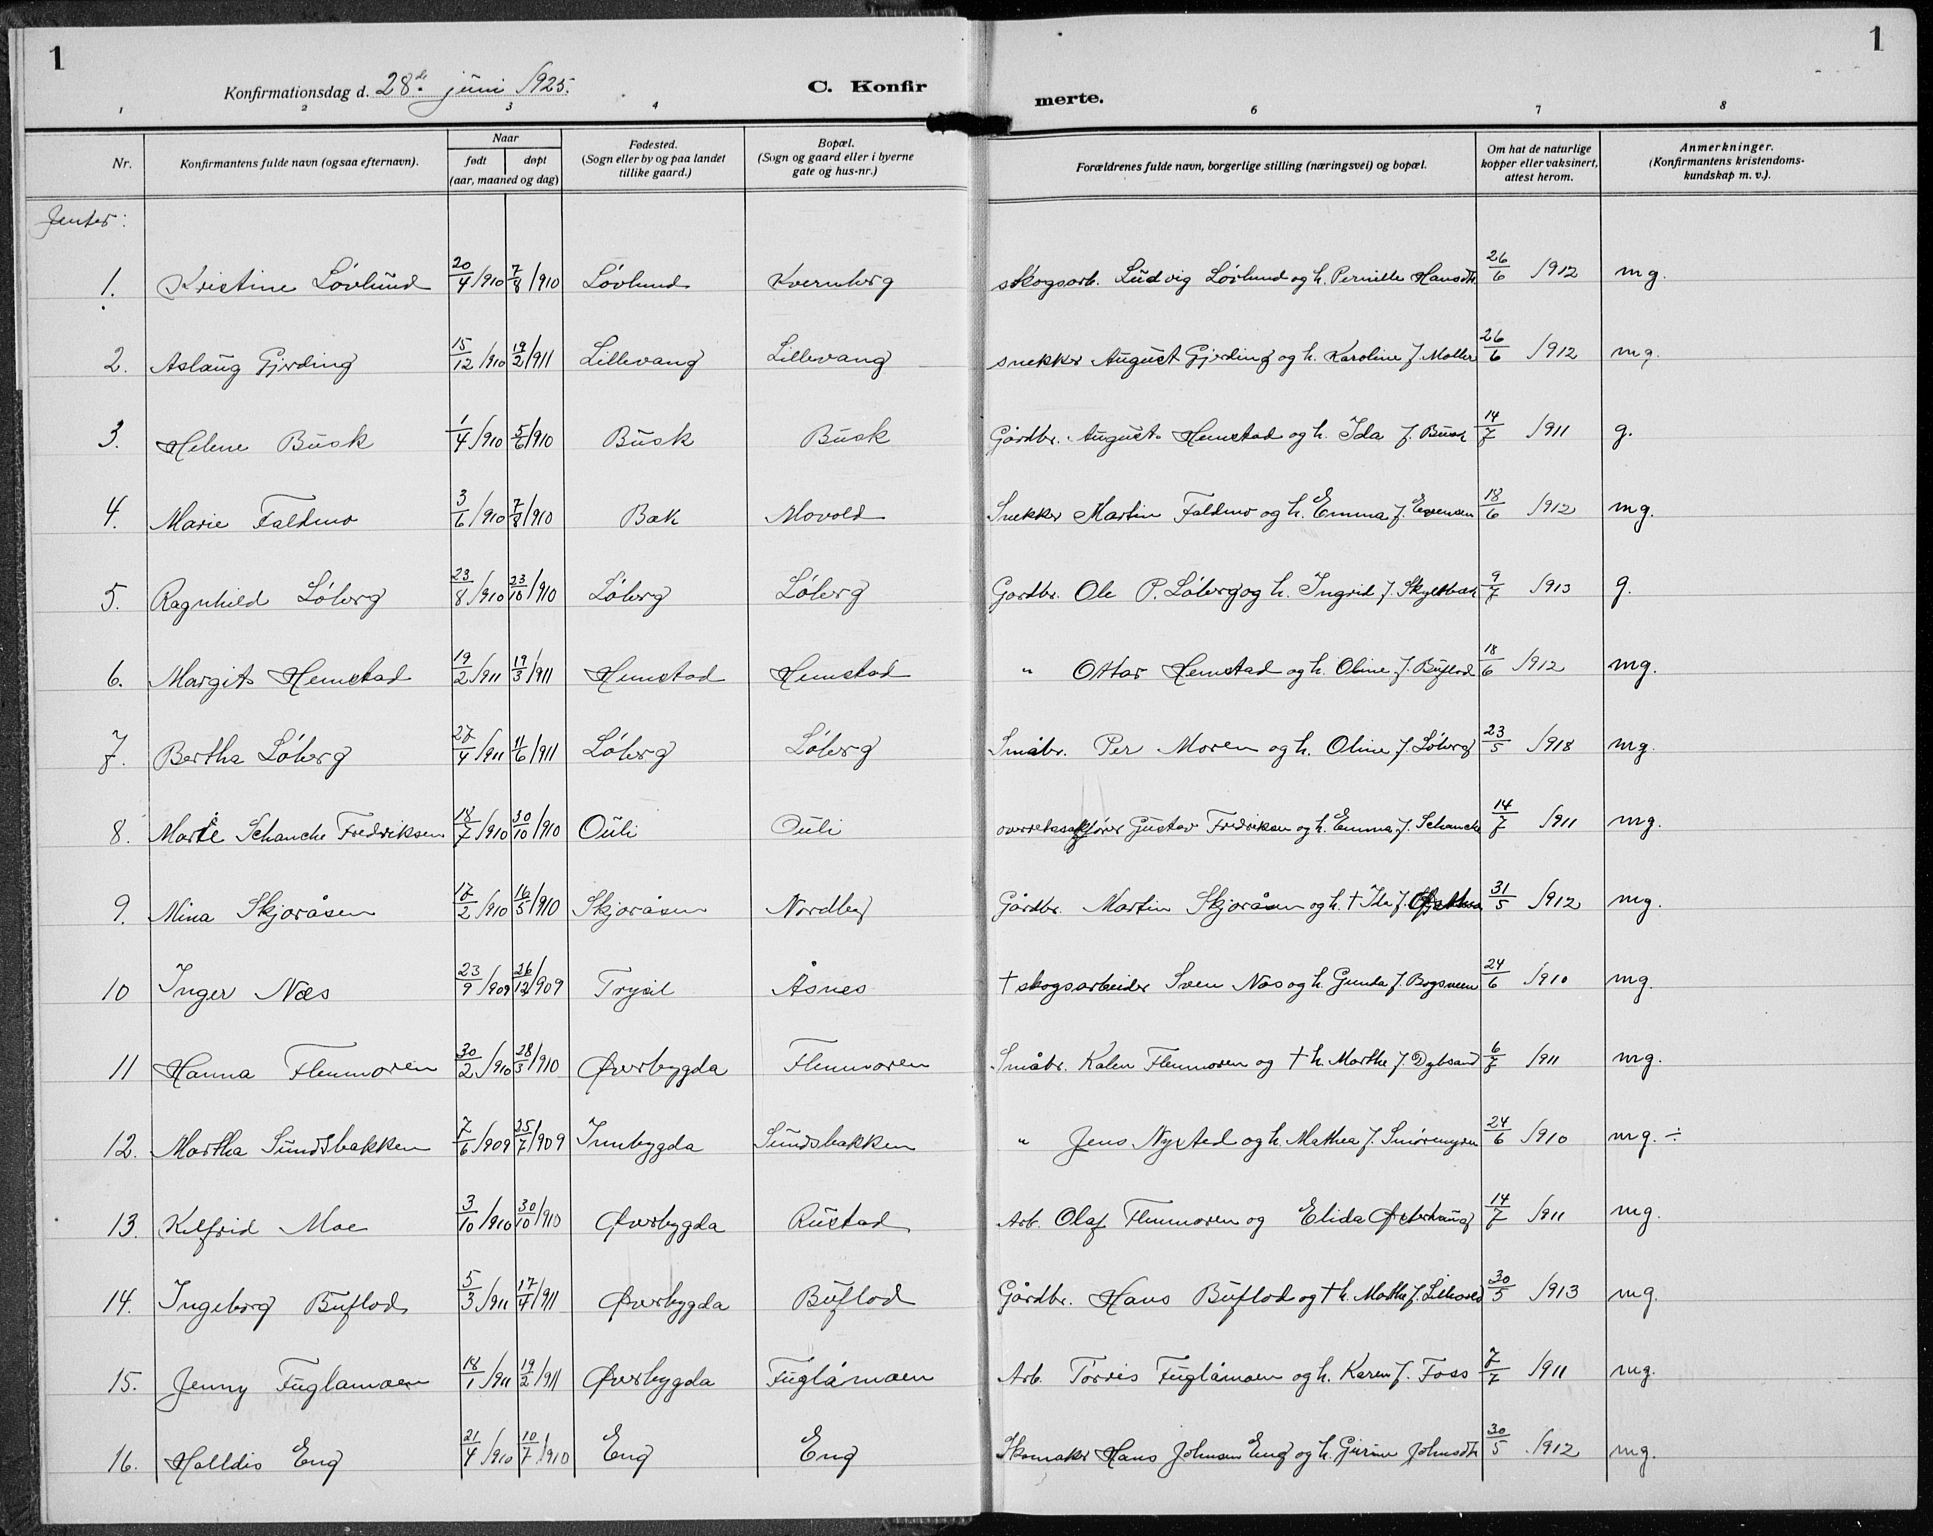 1
1
Konfirmationsdag d. 28de juni 1925.
C. Konfir
merte.
1 2 3 4 6 7 8
Nr. Konfirmantens fulde navn (ogsaa efternavn). Naar født døpt (aar, maaned og dag) Fødested. (Sogn eller by og paa landet tillike gaard.) Bopæl. (Sogn og gaard eller i byerne gate og hus-nr.) Forældrenes fulde navn, borgerlige stilling (næringsvei) og bopæl. Om hat de naturlige kopper eller vaksinert, attest herom. Anmerkninger. (Konfirmantens kristendoms-kundskap m. v.).
Jenter:
1. Kristine Løvlund 20/4 1910 7/8 1910 Løvlund Kvernberg skogsarb. Ludvig Løvlund og h. Pernille Hansdtr. 26/6 1912 mg.
2. Aslaug Gjerding 15/12 1910 19/2 1911 Lillevang Lillevang snekker August Gjerding og h. Karoline f. Moller 26/6 1912 mg.
3. Helene Busk 1/4 1910 5/6 1910 Busk Busk Gårdbr. August Hemstad og h. Ida f. Busk 14/7 1911 g.
4. Marie Faldmo 3/6 1910 7/8 1910 Bæk Movold Snekker Martin Faldmo og h. Emma f. Evensen 18/6 1912 mg.
5. Ragnhild Løberg 23/8 1910 23/10 1910 Løberg Løberg Gårdbr. Ole P. Løberg og h. Ingrid f. Skyltbæk 9/7 1913 g.
6. Margit Hemstad 19/2 1911 19/3 1911 Hemstad Hemstad " Ottar Hemstad og h. Oline f. Buflod 18/6 1912 mg.
7. Bertha Løberg 27/4 1911 11/6 1911 Løberg Løberg Småbr. Per Moren og h. Oline f. Løberg 23/5 1918 mg.
8. Marie Schancke Fredriksen 18/7 1910 30/10 1910 Ouli Ouli overretssakfører Gustav Fredriksen og h. Emma f. Schancke 14/7 1911 mg.
9. Mina Skjøråsen 17/2 1910 16/5 1910 Skjøråsen Nordby Gårdbr. Martin Skjøråsen og h. † Ida f. 31/5 1912 mg.
10 Inger Næs 23/9 1909 26/12 1909 Trysil Åsnes † skogsarbeider Sven Næs og h. Gunda f. Bogsveen 24/6 1910 mg.
11 Hanna Flenmoren 30/2 1910 28/3 1910 Øverbygda Flenmoren Småbr. Kalen Flenmoren og † h. Marthe f. Dybsand 6/7 1911 mg.
12. Martha Sundsbakken 7/6 1909 25/7 1909 Innbygda Sundsbakken " Jens Nysted og h. Mathea f. Smøremyren 24/6 1910 mg. ÷
13. Kelfrid Moe 3/10 1910 30/10 1910 Øverbygda Rustad Arb. Olaf Flenmoren og Elida Østerhaug 14/7 1911 mg.
14. Ingeborg Buflod 5/3 1911 17/4 1911 Øverbygda Buflod Gårdbr. Hans Buflod og † h. Marthe f. 30/5 1913 mg.
15. Jenny Fuglåmoen 18/1 1911 19/2 1911 Øverbygda Fuglåmoen Arb. Torris Fuglåmoen og h. Karen f. Foss 7/7 1911 mg.
16. Halldis Eng 21/4 1910 10/7 1910 Eng Eng Skomaker Hans Johnsen Eng og h. Gurine Johnsdtr 30/5 1912 mg.